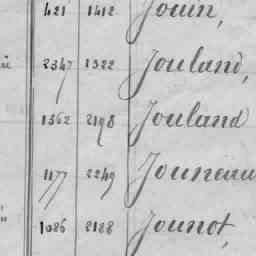 421 1412 Jouin,
2347 1322 Jouland,
1362 2198 Jouland
1177 2249 Jouneau
" 1086 2188 Jounot,